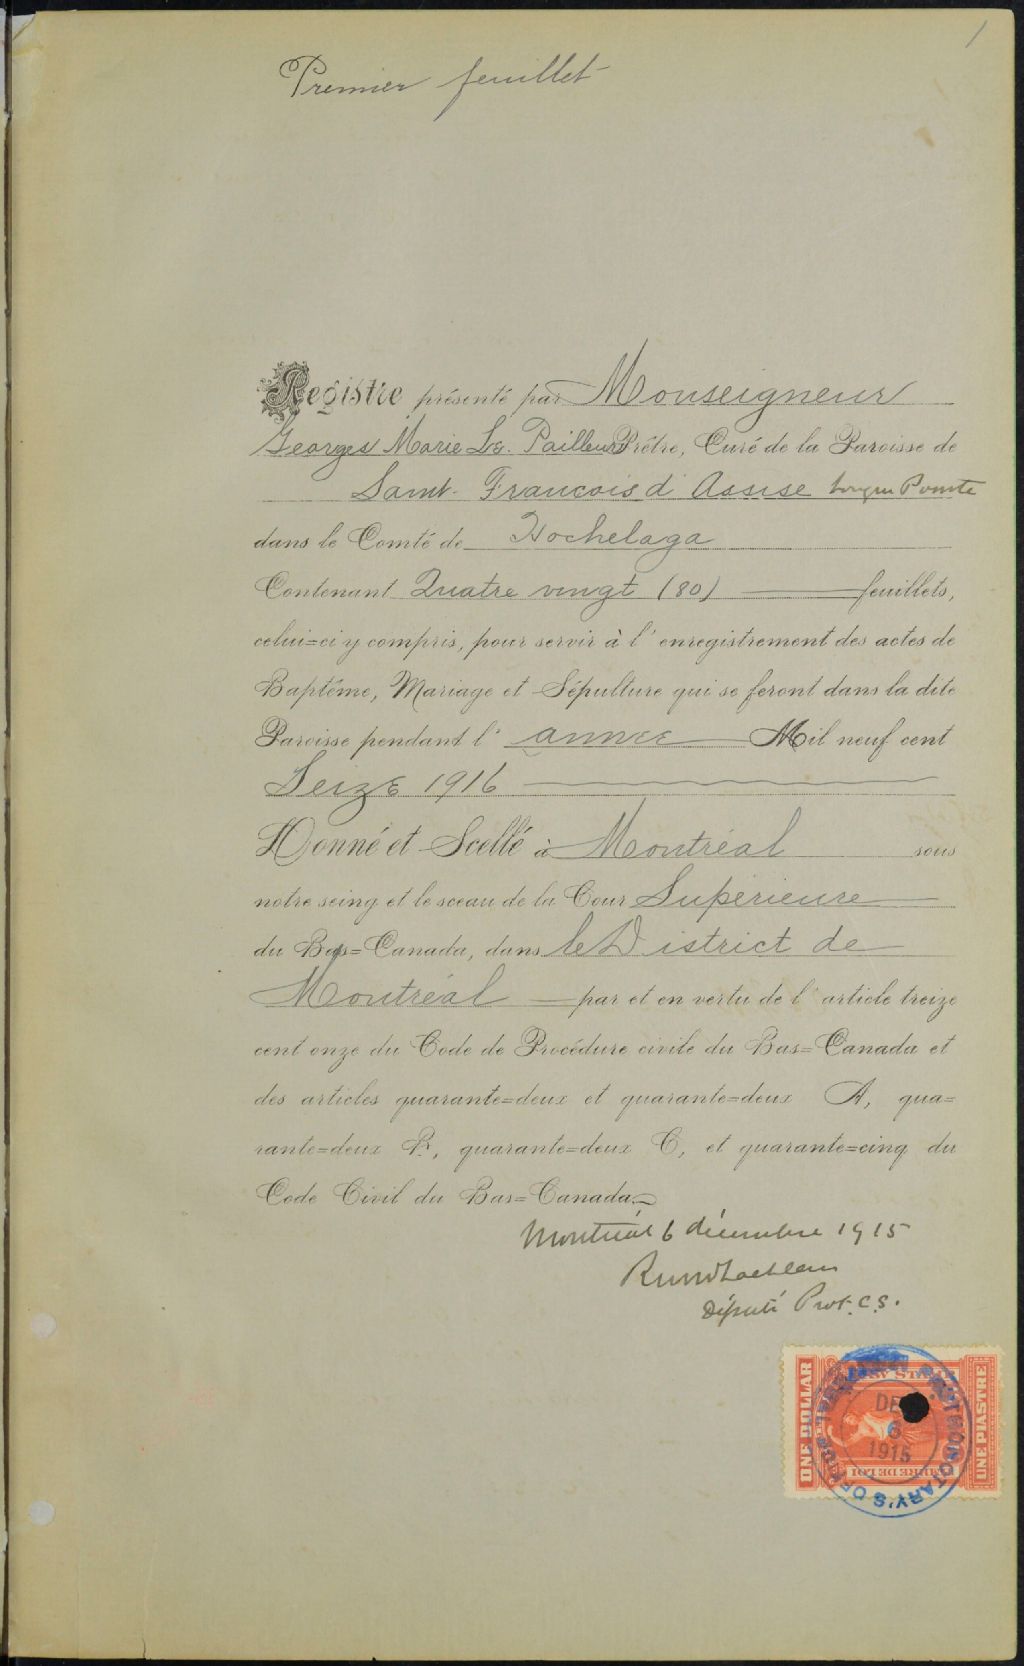 1
Premier feuillet
Registre présenté par Monseigneur
Georges Marie Le. Pailleur Prêtre, Curé de la Paroisse de
Saint. François d'Assise Longue Pointe
dans le Comté de Hochelaga
Contenant Quatre vingt (80) feuillets,
celui=ci y compris, pour servir à l'enregistrement des actes de
Baptême, Mariage et Sépulture qui se feront dans la dite
Paroisse pendant l'année Mil neuf cent
Seize 1916
Donné et Scellé à Montréal sous
notre seing et le sceau de la Cour Supérieure
du Bas=Canada, dans le District de
Montréal par et en vertu de l'article treize
cent onze du Code de Procédure civile du Bas=Canada et
des articles quarante=deux et quarante=deux A, qua=
rante=deux B, quarante=deux C, et quarante=cinq du
Code Civil du Bas=Canada.
Montréal 6 décembre 1915
Député Prot. C.S.
ONE DOLLAR
LAW STAMP
TIMBRE DE LOI
UNE PIASTRE
PROTHONOTARY'S OFFICE
DE
6
1915